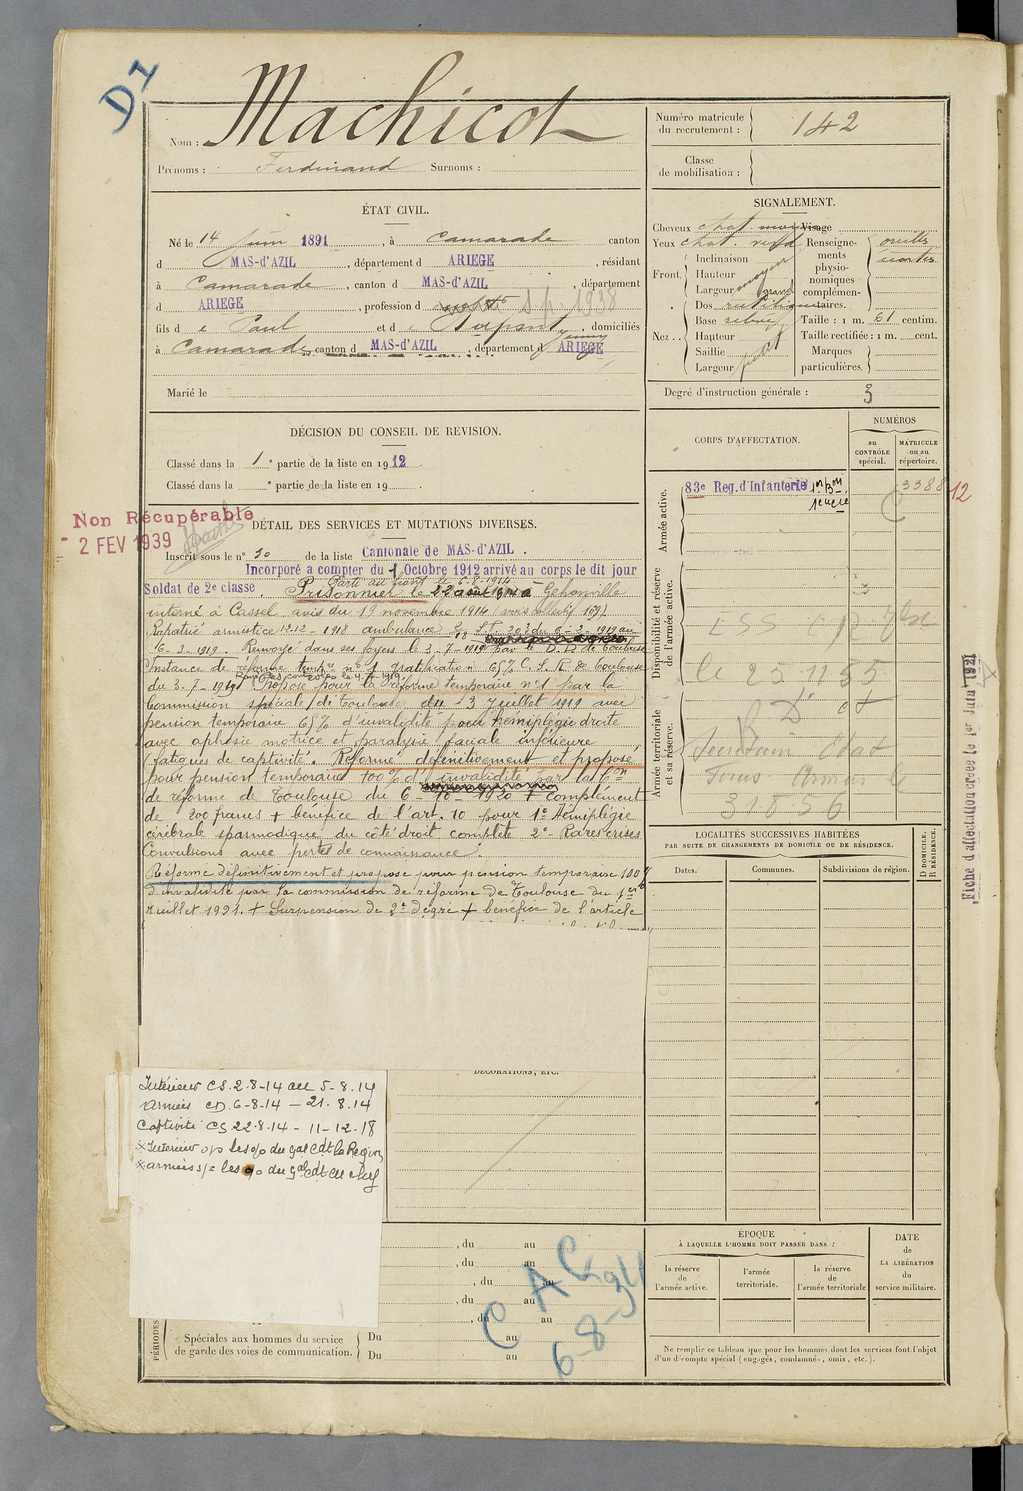 D1
Nom : Machicot
Prénoms : Ferdinand Surnoms :
Numéro matricule du recrutement : 142
Classe de mobilisation :
ÉTAT CIVIL.
Né le 14 Juin 1891, à Camarade canton
d MAS-d'AZIL, département d ARIEGE, résidant
à Camarade, canton d MAS-d'AZIL, département
d ARIEGE, profession d s.p. 1938
fils d e Paul et d e Serpent Jenny, domiciliés
à Camarade, canton d MAS-d'AZIL, département d ARIEGE
Marié le
SIGNALEMENT.
Cheveux chat Visage
Yeux chat. Renseigne-
ments
physio-
nomiques
complémen-
taires.
oreilles
Front.
Inclinaison
Hauteur moyen
Largeur grand
Nez..
Dos rectiligne
Base
Hauteur
Saillie
Largeur
Taille : 1 m. 61 centim.
Taille rectifiée : 1 m. cent.
Marques
particulières.
Degré d'instruction générale : 3
DÉCISION DU CONSEIL DE REVISION.
Classé dans la 1e partie de la liste en 1912.
Classé dans la e partie de la liste en 19 .
Non Récupérable
2 FEV 1939
DÉTAIL DES SERVICES ET MUTATIONS DIVERSES.
Inscrit sous le n° 30 de la liste Cantonale de MAS-d'AZIL.
Incorporé a compter du 1 Octobre 1912 arrivé au corps le dit jour
Soldat de 2e classe. Parti au front le 6-8-1914
Prisonnier le 22 août 1914 à
interné à Cassel avis du 19 novembre 1914
Rapatrié armistice 12-12-1918 ambulance
6-3-1919. Renvoyé dans ses foyers le 3-7-1919 par le D.D. de Toulouse
Instance de réforme tempre n° 1 gratification 65% C.S.R. de Toulouse
du 3-7-1919. Proposé pour la réforme temporaire n°1 par la
Commission spéciale de Toulouse du 3 Juillet 1919 avec
pension temporaire 65% d'invalidité pour hémiplégie droite
avec aphasie motrice et paralysie faciale inférieure
(fatigues de captivité. Réformé définitivement et proposé
pour pension temporaire 100% d'invalidité par la Con
de réforme de Toulouse du 6-10-1920 + complément
de 200 francs + bénéfice de l'art. 10 pour 1° Hémiplégie
cérébrale spasmodique du côté droit complet 2° Rares crises
Convulsions avec pertes de connaissance.
Réformé définitivement et proposé pour pension temporaire 100%
d'invalidité par la commission de réforme de Toulouse du 1er
Juillet 1921. + Surpension de 2e degré + bénéfice de l'article
CORPS D'AFFECTATION.
NUMÉROS
au
CONTRÔLE
spécial.
MATRICULE
ou au
répertoire.
Armée active.
83e Reg. d'Infanterie
3388
12
Disponibilité et réserve
de l'armée active.
Armée territoriale
et sa réserve.
le 25 11 55
Secrétaire Etat
Forces Armées le
31856
Fiche d'affectation créée le 1er juin 1921
LOCALITÉS SUCCESSIVES HABITÉES
PAR SUITE DE CHANGEMENTS DE DOMICILE OU DE RÉSIDENCE.
Dates. Communes. Subdivisions de région.
D DOMICILE.
R RÉSIDENCE.
DÉCORATIONS, ETC.
Intérieur CS. 2-8-14 au 5-8.14
Armées CD. 6-8-14 – 21.8.14
Captivité CS 22.8.14 - 11-12.18
, du au
, du au
, du au
, du au
, du au
PÉRIODES
Spéciales aux hommes du service
de garde des voies de communication.
Du au
Du au
C A C
6-8-34
ÉPOQUE
À LAQUELLE L'HOMME DOIT PASSER DANS :
la réserve
de
l'armée active.
l'armée
territoriale.
la réserve
de
l'armée territoriale
DATE
de
LA LIBÉRATION
du
service militaire.
Ne remplir ce tableau que pour les hommes dont les services font l'objet
d'un décompte spécial (engagés, condamnés, omis, etc.).